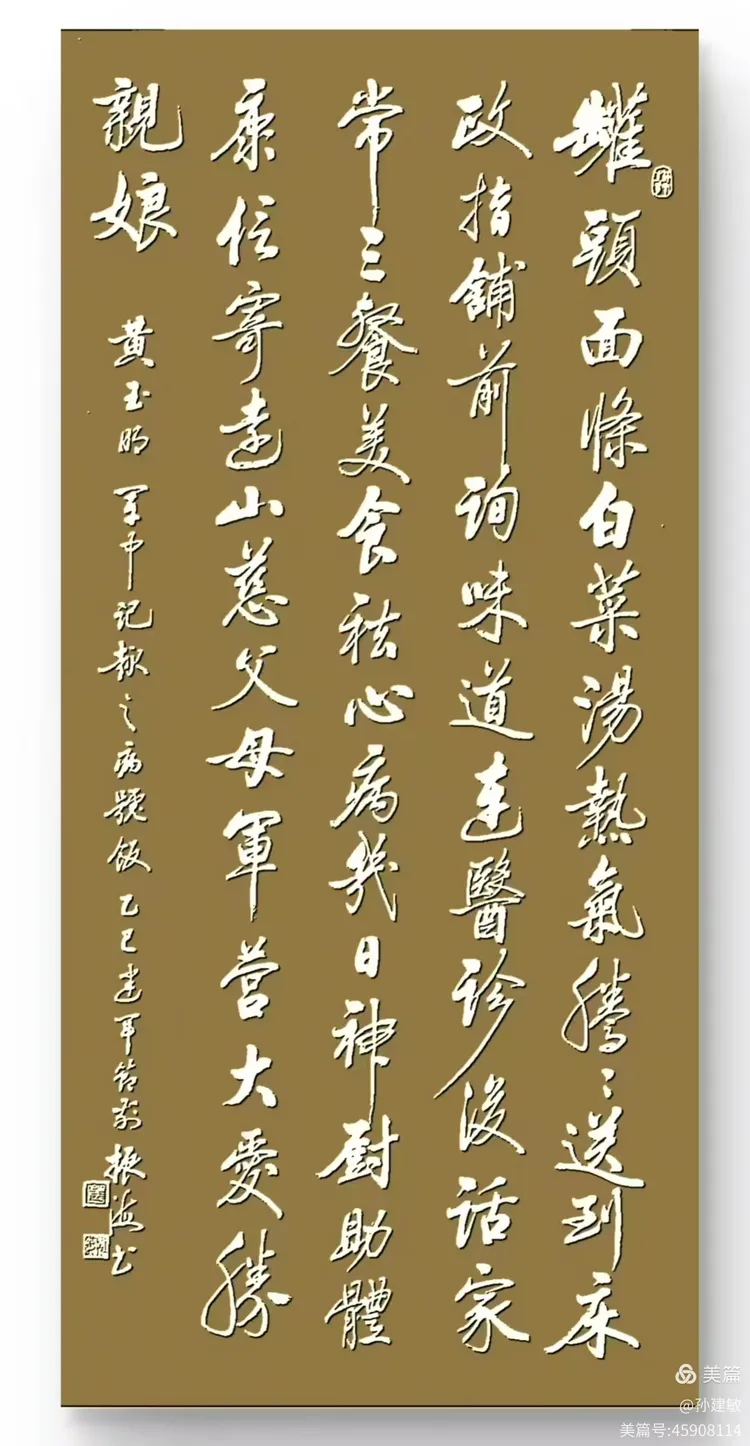 罐頭面條白菜湯熱氣騰〻送到床
政指鋪前詢味道連醫診後話家
常三餐美食祛心病幾日神厨助體
康信寄遠山慈父母軍營大愛勝
親娘
黄玉明 军中记趣之病號飯 乙巳建军節前 振海书
美篇
@孙建敏
美篇号:45908114